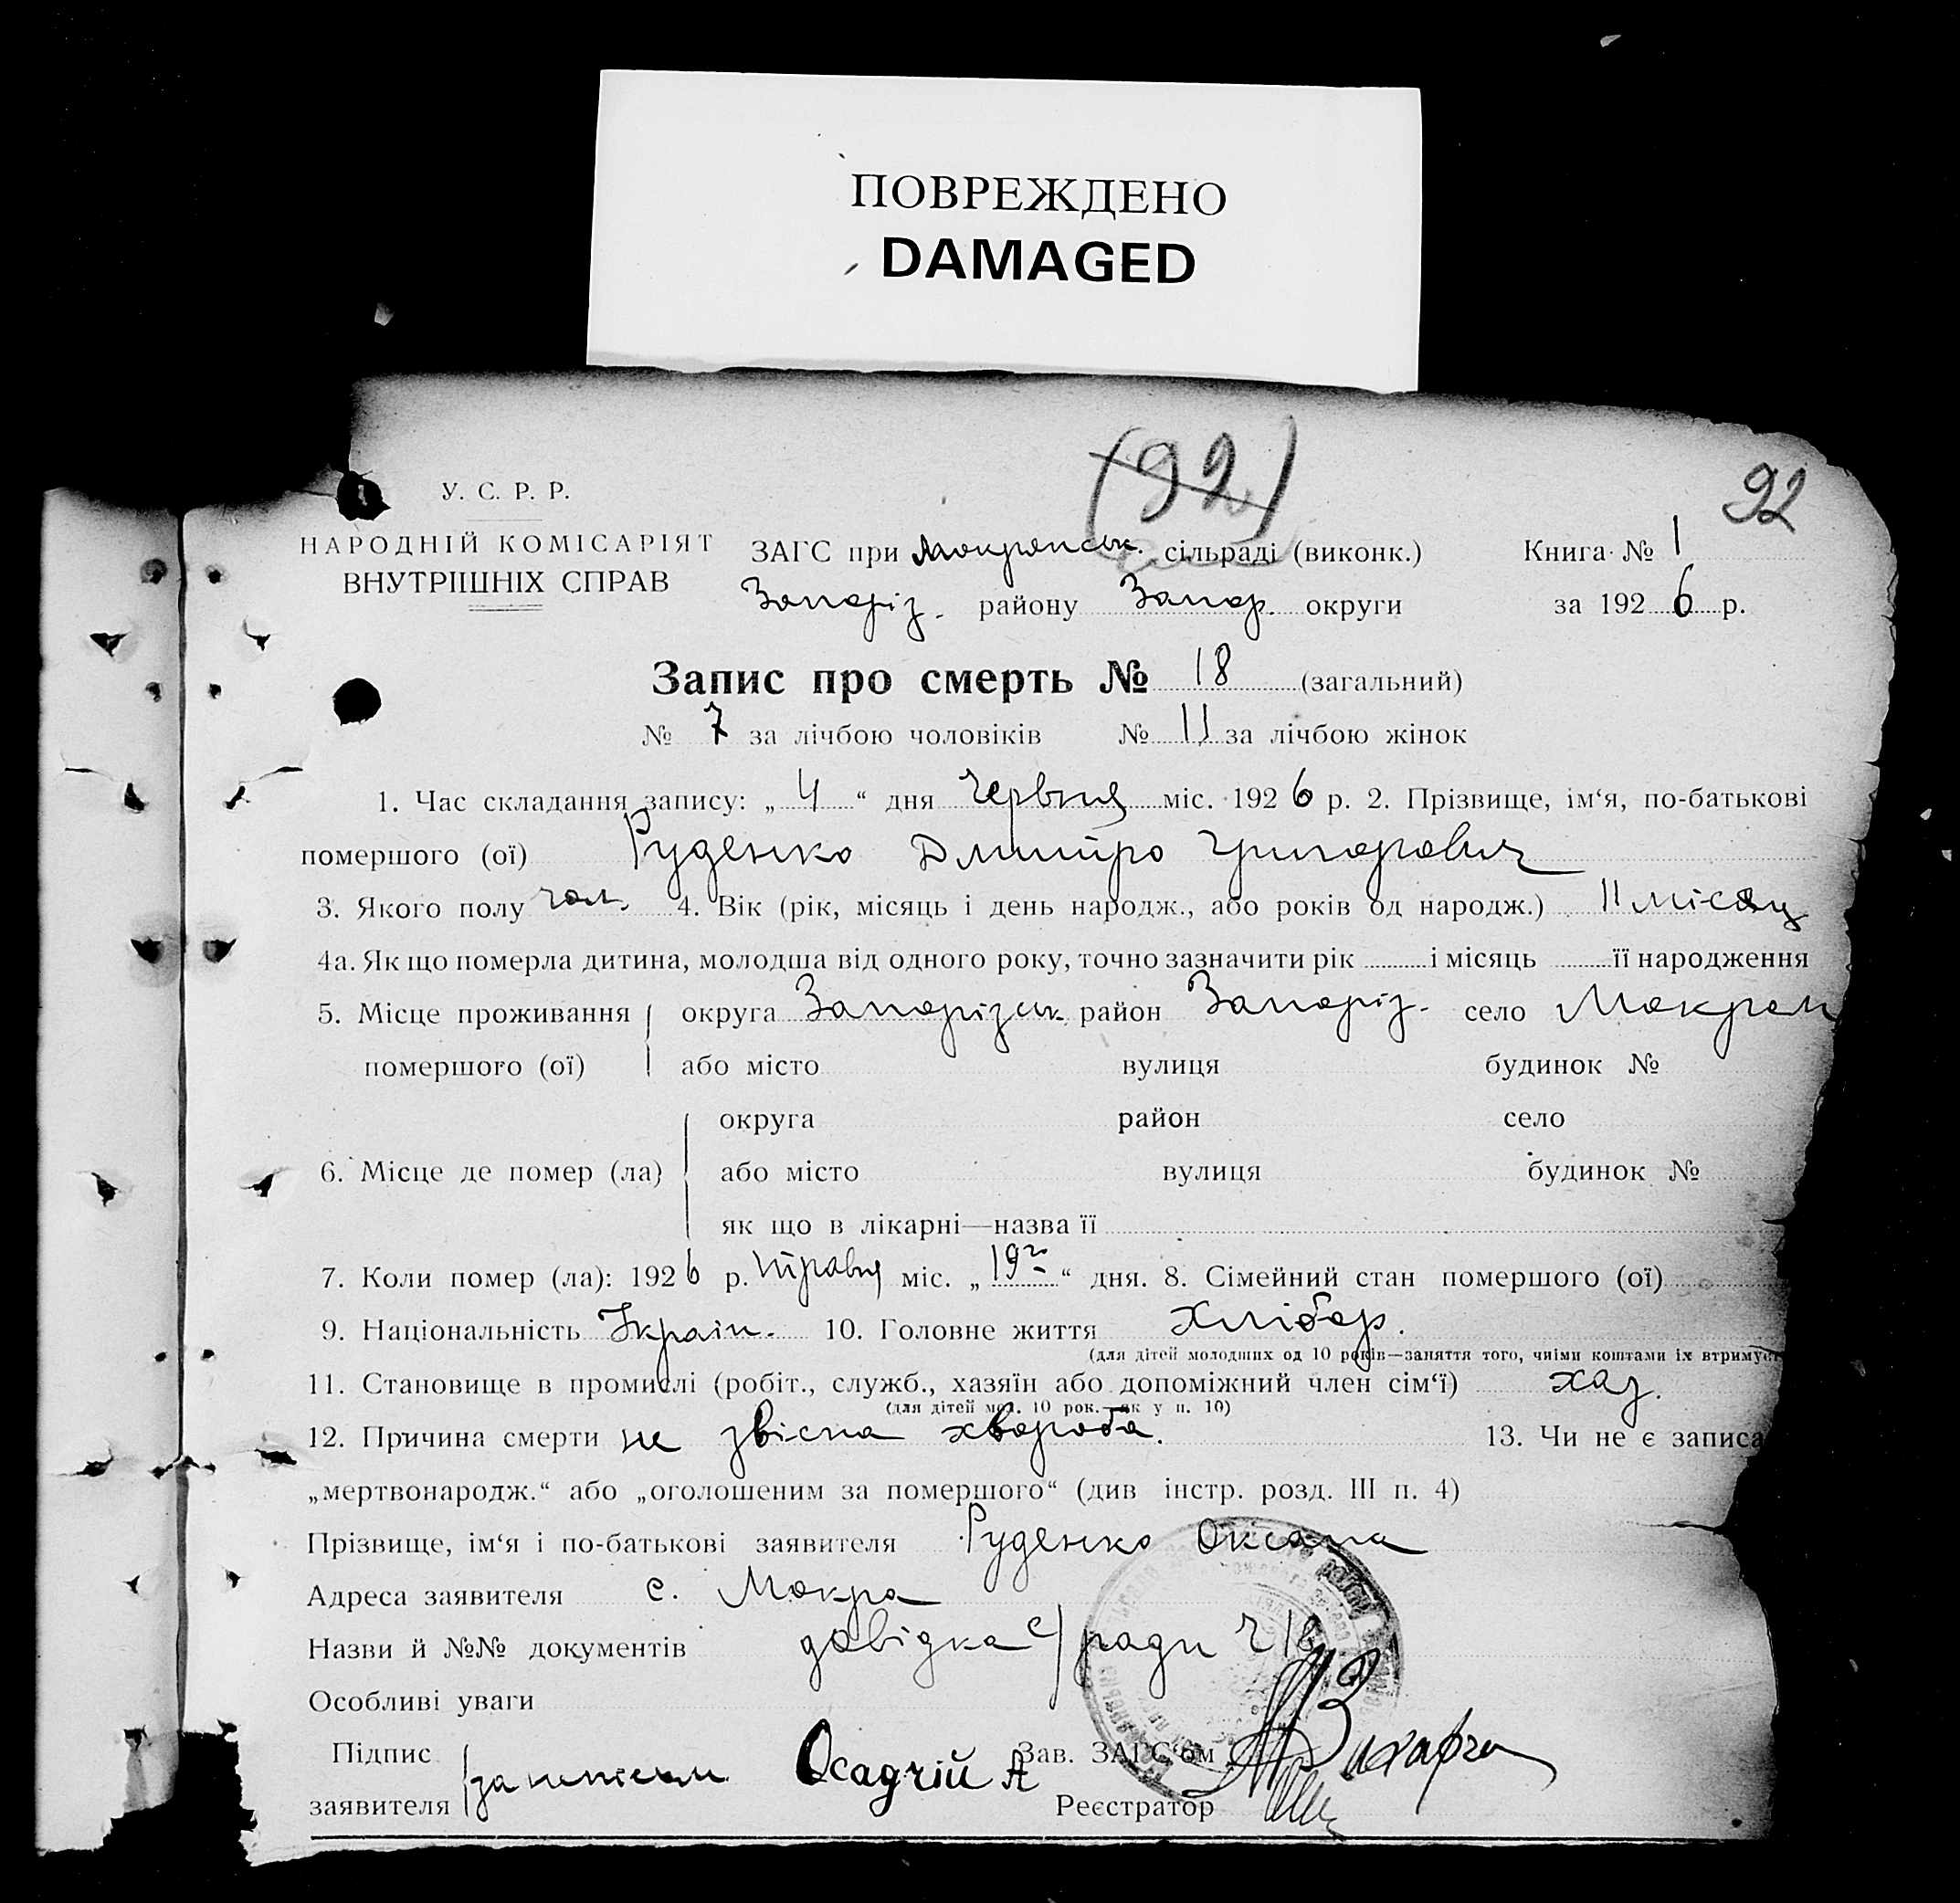 ПОВРЕЖДЕНО
DAMAGED
(92)
92
У. С. Р. Р.
НАРОДНІЙ КОМІСАРІЯТ
ВНУТРІШНІХ СПРАВ
ЗАГС при Мокрянськ. сільраді (виконк.)
Книга № 1
Запоріз. району Запор. округи
за 1926 р.
Запис про смерть № 18 (загальний)
№ 7 за лічбою чоловіків № 11 за лічбою жінок
1. Час складання запису: „4“ дня червня міс. 1926 р. 2. Прізвище, ім‘я, по-батькові
помершого (ої) Руденко Дмитро Григорович
3. Якого полу чол. 4. Вік (рік, місяць і день народж., або років од народж.) 11 місяц
4а. Як що померла дитина, молодша від одного року, точно зазначити рік і місяць її народження
5. Місце проживання округа Запорізьк. район Запоріз. село Мокрян
помершого (ої) або місто вулиця будинок №
округа район село
6. Місце де помер (ла) або місто вулиця будинок №
як що в лікарні—назва її
7. Коли помер (ла): 1926 р. травня міс. „19го“ дня. 8. Сімейний стан помершого (ої)
9. Національність Украін. 10. Головне життя Хлібор.
(для дітей молодших од 10 років—заняття того, чиїми коштами їх втримує
11. Становище в промислі (робіт., служб., хазяїн або допоміжний член сім‘ї) хаз.
(для дітей мол. 10 рок.—як у п. 10)
12. Причина смерти не звісна хвороба. 13. Чи не є записа
„мертвонародж.“ або „оголошеним за помершого“ (див інстр. розд. III п. 4)
Прізвище, ім‘я і по-батькові заявителя Руденко Оксана
Адреса заявителя с. Мокра
Назви й №№ документів довідка с/ради
Особливі уваги
Підпис
заявителя
Осадчій А
Зав. ЗАГС‘ом
Реєстратор